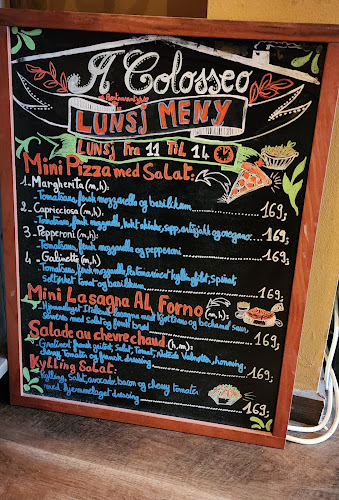 A Colosseo
LUNSJ MENY
LUNSJ fra 11 TIL 14
Mini Pizza med Salat:
1-Margherita (m,h):
-Tomatsaus, fersk mozzarella og basilikum 169;
2-Capricciosa (m,h):
-Tomatsaus, fersk mozzarella, kokt skinke, sopp, artisjokk og oregano 169;
3-Pepperoni (m,h):
-Tomatsaus, fersk mozzarella og pepperoni 169;
4-Galinette (m,h):
-Tomatsaus, fersk mozzarella, kyllingfilet, Spinat,
Soltørket tomat og basilikum 169;
Mini Lasagna AL Forno (m,h):
Hjemmelaget Italiensk lasagne med kjøttsaus og bechamel saus,
Serveres med Salat og brød 169;
Salade au chevre chaud (h,m):
Gratinert fransk geitost, Salat, Tomat, Valnøtter, honning,
cherry Tomater og fransk dressing 169;
Kylling Salat:
Kylling, Salat, avocado, bacon og cherry tomater
med hjemmelaget dressing 169;